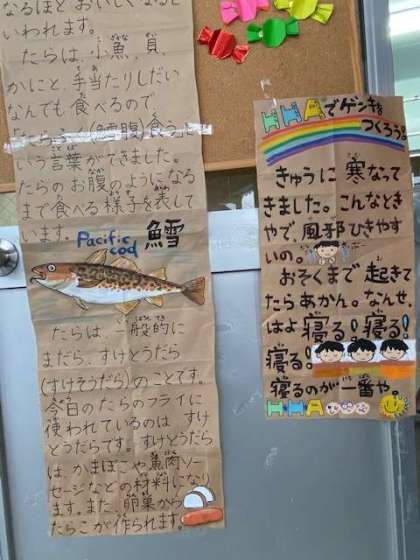 なるほど おいしくなると
いわれます。
たらは、小魚、貝、
かにと 手当たりしだい
なんでも 食べるので、
たらふく(鱈腹)食う と
いう言葉ができました。
たらのお腹のようになる
まで食べる様子を表して
います。
Pacific cod 鱈
たらは、一般的に
まだら、すけとうだら
(すけそうだら)のことです。
今日のたらのフライに
使われているのは すけ
とうだらです。すけとうだら
は、かまぼこや魚肉ソー
セージなどの材料になり
ます。また、卵巣から
たらこが作られます。
でゲンキを
つくろう
きゅうに 寒なって
きました。こんなとき
やで、風邪ひきやす
いの。
おそくまで 起きて
たらあかん。なんせ、
はよ 寝る!寝る!
寝る!
寝るのが 一番や。